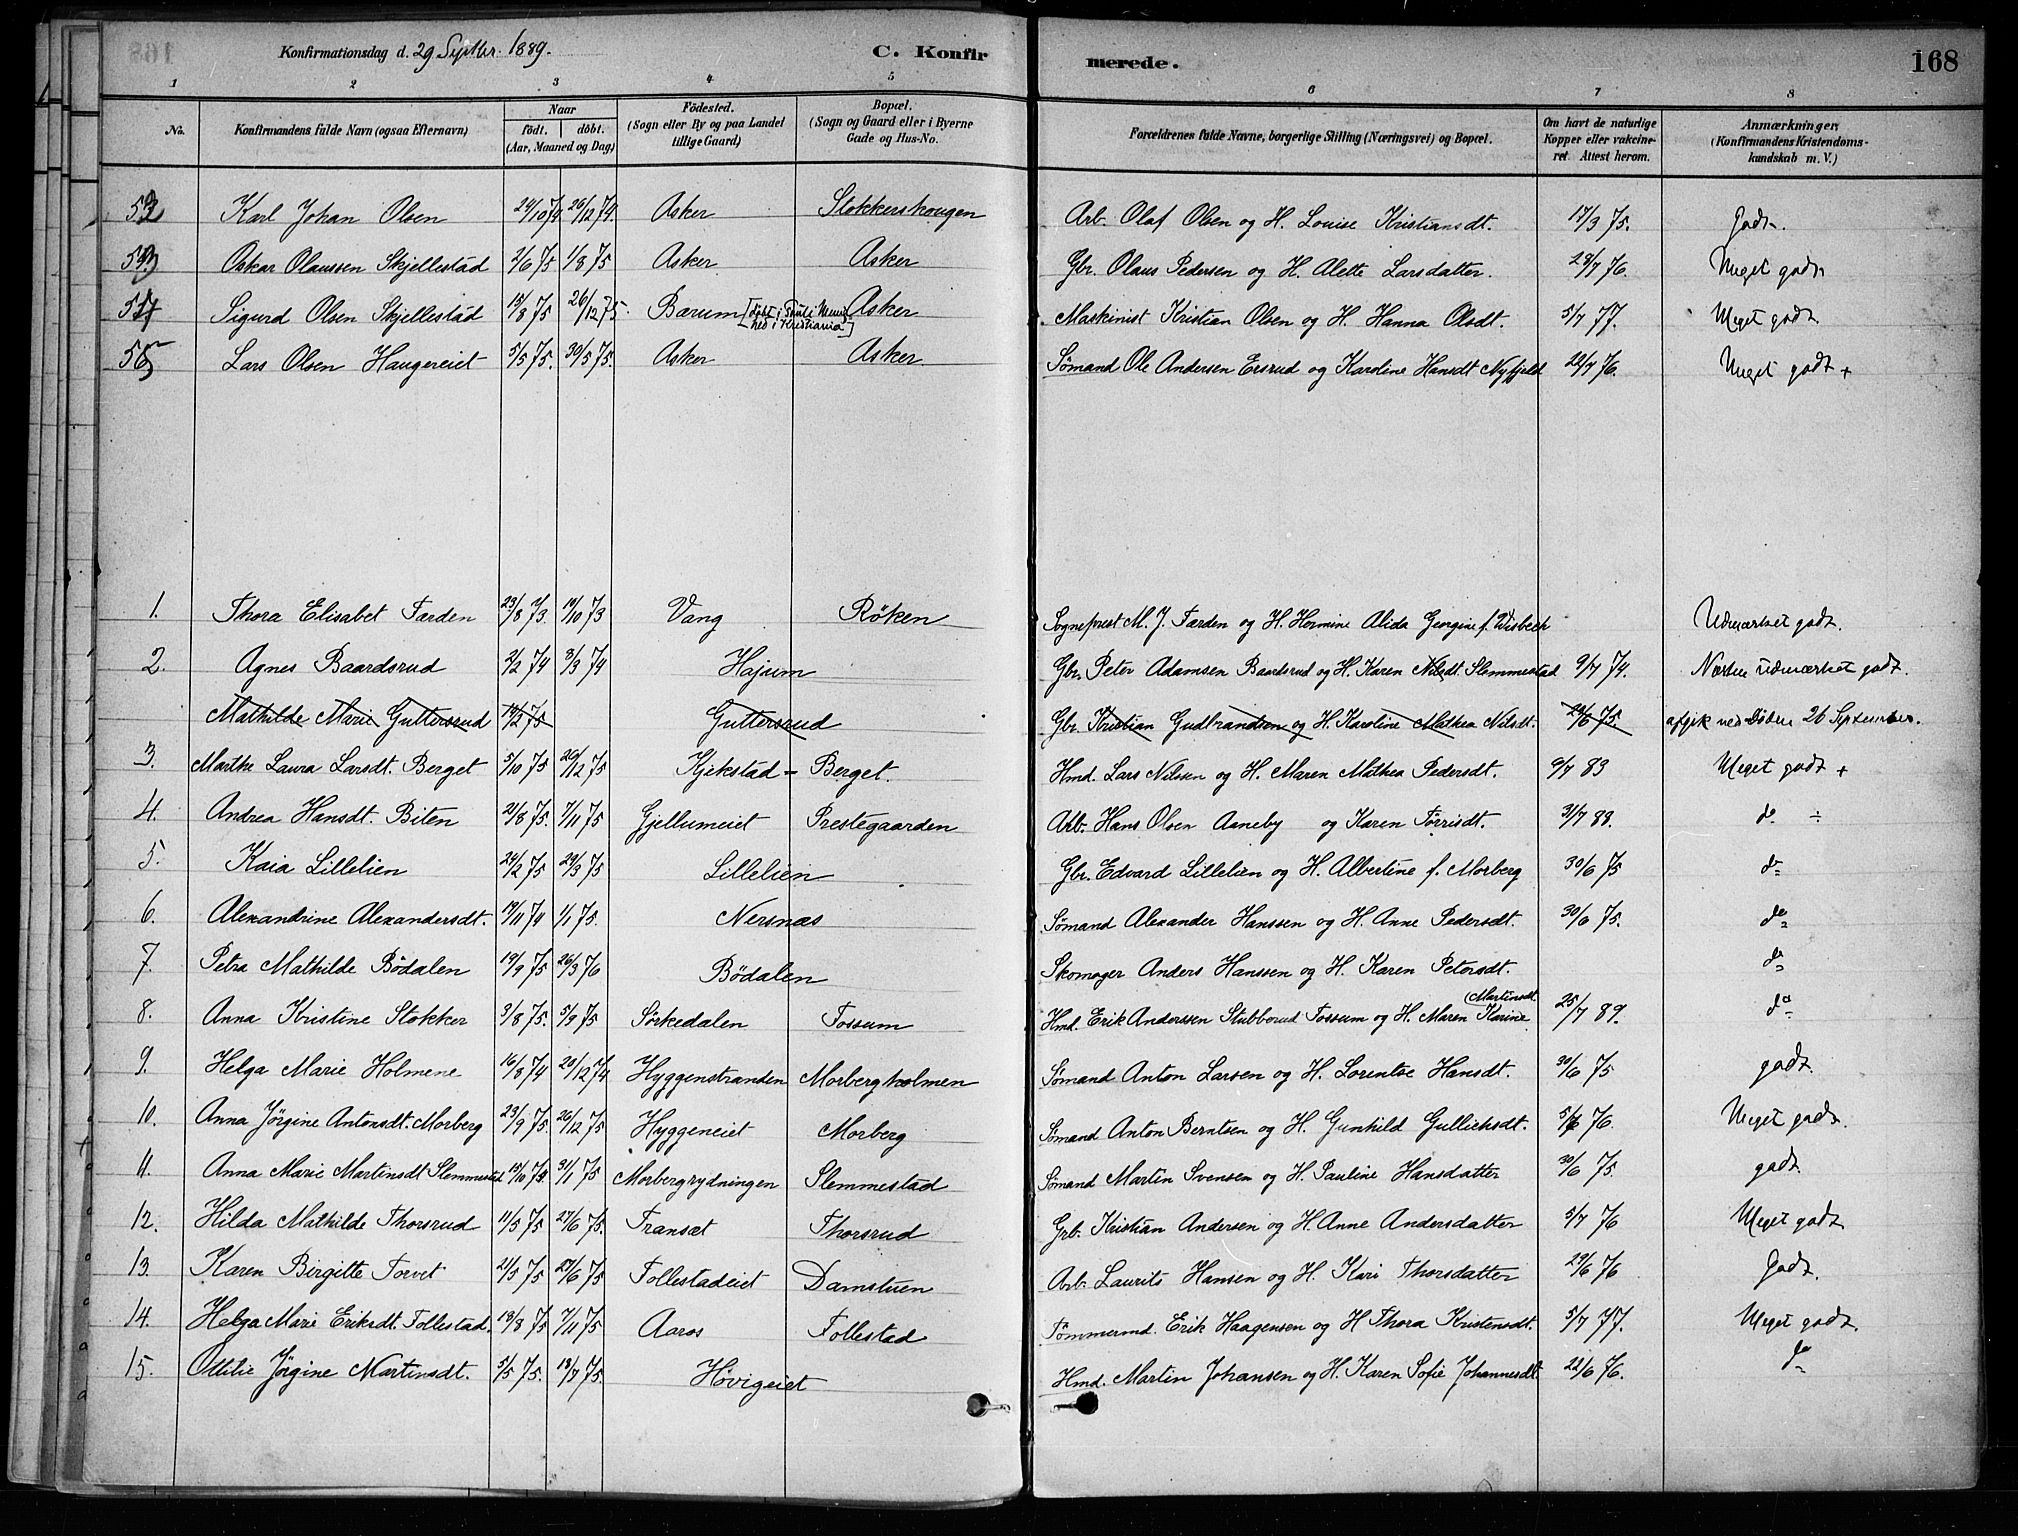 Konfirmationsdag d. 29 Septbr. 1889. C. Konfirmerede. 168
1 2 3 4 5 6 7 8
No. Konfirmandens fulde Navn (ogsaa Efternavn) Naar födt. döbt. (Aar, Maaned og Dag) Födested. (Sogn eller By og paa Landet tillige Gaard) Bopæl. (Sogn og Gaard eller i Byerne Gade og Hus-No. Forældrenes fulde Navne, borgerlige Stilling (Næringsvei) og Bopæl. Om havt de naturlige Kopper eller vakcineret. Attest herom. Anmærkninger. (Konfirmandens Kristendomskundskab m. V.)
Karl Johan Olsen 24/10 74 26/12 74. Asker Stokkerskougen Arb. Olaf Olsen og H. Louise Kristiansdt. 17/3 75. Godt.
Oskar Olaussen Skjellestad 2/6 75 1/8 75 Asker Asker Gbr. Olaus Pedersen og H. Alette Larsdatter. 28/7 76. Meget godt
Sigurd Olsen Skjellestad 15/8 75 26/12 75. Bærum Asker Maskinist Kristian Olsen og H. Hanna Olsdt. 5/7 77. Meget godt
55 Lars Olsen Haugereiet 5/5 75. 30/5 75. Asker Asker. Sømand Ole Andersen Ersrud og Karoline Hansdt Nyfjeld 22/7 76. Meget godt +
1. Thora Elisabet Færden 23/8 73. 19/10 73 Vang Röken Sogneprest M. J. Færden og H. Hermine Alida Georgine f. Wisbech Udmærket godt.
2. Agnes Baardsrud 2/2 74 8/3 74 Hajum Gbr. Peter Adamsen Baardsrud og H. Karen Nilsdt. Slemmestad 9/7 74. Næsten udmærket godt.
Mathilde Marie Guttersrud 19/2 75 Guttersrud Gbr. Kristian Gudbrandsen og H. Karoline Mathea Nilsdt. 29/6 75. afgik ved Døden 26 September.
3. Marthe Laura Larsdt. Berget 5/10 75 26/12 75 Kjekstad - Berget. Hmd. Lars Nilsen og H. Maren Mathea Pedersdt. 9/7 83 Meget godt +
4. Andrea Hansdt. Biten 21/8 75. 7/11 75 Gjellumeiet Prestegaarden Arb. Hans Olsen Aaneby og Karen Tørrisdt. 31/7 88. do ÷
5. Kaia Lillelien 24/2 75 29/3 75 Lillelien Gbr. Edvard Lillelien og H. Albertine f. Morberg 30/6 75 do
6. Alexandrine Alexandersdt. 19/11 74 1/1 75. Nersnæs Sømand Alexander Hanssen og H. Anne Pedersdt. 30/6 75. do
7. Petra Mathilde Bödalen 19/9 75 26/3 76 Bödalen Skomager Anders Hanssen og H. Karen Petersdt. do
8. Anna Kristine Stokker 3/8 75. 5/9 75 Sörkedalen Fossum Hmd. Erik Anderssen Stubberud Fossum og H. Maren Karine Martinsdt 25/7 89. do
9. Helga Marie Holmene 16/8 74 20/12 74 Hyggenstranden Morbergholmen Sømand Anton Larsen og H. Lorentse Hansdt. 30/6 75 godt.
10. Anna Jörgine Antonsdt. Morberg 23/9 75. 26/12 75 Hyggeneiet Morberg Sømand Anton Berntsen og H. Gunhild Gulliksdt. 5/7 76. Meget godt.
11. Anna Marie Martinsdt Slemmestad 31/1 75 Morbergrydningen Slemmestad Sømand Martin Svensen og H. Pauline Hansdatter 30/6 75. godt.
12. Hilda Mathilde Thorsrud 11/5 75 27/6 75. Transæt Thorsrud Grb. Kristian Andersen og H. Anne Andersdatter 5/7 76 Meget godt
13. Karen Birgitte Torvet 21/3 75 27/6 75 Follestadeiet Damstuen Arb. Laurits Hansen og H. Kari Thorsdatter 29/6 76 Godt.
14. Helga Marie Eriksdt. Follestad. 13/8 75 7/11 75 Aaros Follestad Tömmermd. Erik Haagensen og H Thora Kristensdt. 5/7 77. Meget godt.
15. Ottilie Jörgine Martinsdt. 5/5 75. 18/7 75. Hövigeiet Hmd. Martin Johansen og H. Karen Sofie Johannesdt 22/6 76. do